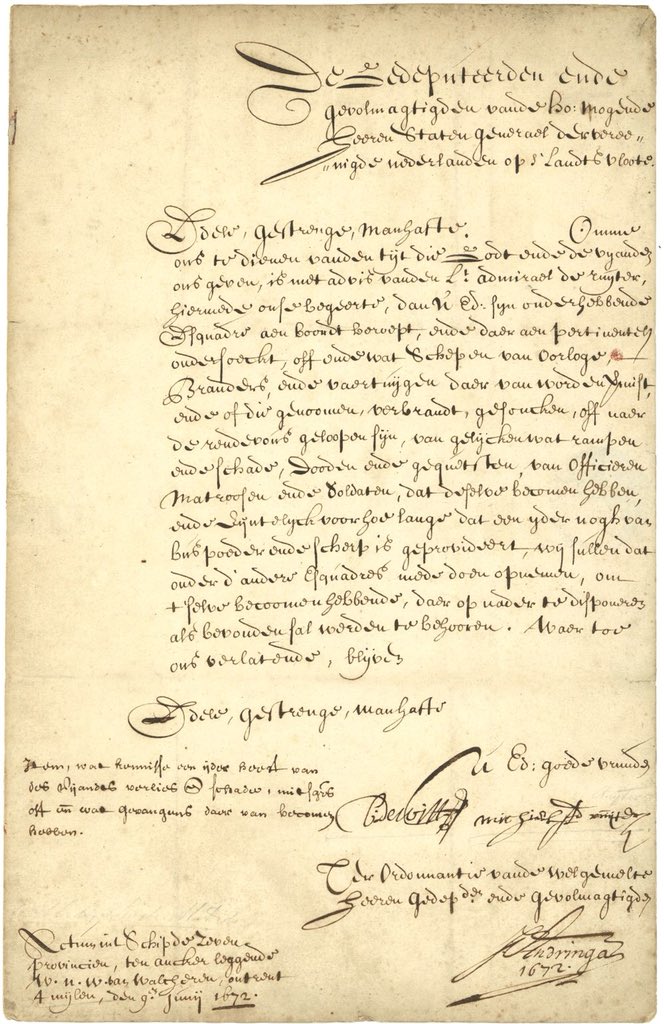 De Gedeputeerden ende
gevolmagtigden vande Ho: Mogende
Heeren Staten Generael der veree-
nigde nederlanden op 's Landts vloote.
Edele, gestrenge, Manhafte. Omme
ons te dienen vanden tijt die Godt ende de vyanden
ons geven, is met advis vanden Lt admirael de ruyter,
hiermede onse begeerte, dan U Ed: syn onderhebbende
Esquadre aen boordt beroept, ende daer aen pertinentelyck
ondersoeckt, off ende wat Schepen van Oorloge
Branders, ende vaertuijgen daer van worden gemist,
ende of die genoomen, verbrandt, gesoncken, off naer
de rendevous geloopen sijn, van gelycken wat rampen
ende schade, Dooden ende gequetsten, van Officieren
Matroosen ende Soldaten, dat deselve becomen hebben,
ende Eyntelyck voor hoe lange dat een yder nogh van
buspoeder ende scherp is geprovideert, wij sullen dat
onder d'andere Esquadres mede doen opnemen, om
t selve becoomen hebbende, daer op nader te disponeren
als bevonden sal werden te behooren. Waer toe
ons verlatende, blyven
Edele, gestrenge, manhafte
U Ed: goede vrunden
Item, wat kennisse een yder heeft van
des Vyandts verlies ende schade, mitsgrs
off en wat gevangens daer van becomen
hebben.
C de Witt
Ter Ordonnantie vande welgemelte
Heeren Gedepden ende Gevolmagtigden
Actum int Schip de Zeven
provincien, ten ancker leggende
W. n. W. van Walcheren, ontrent
4 mylen, den 9e Junij 1672.
Andringa
1672.